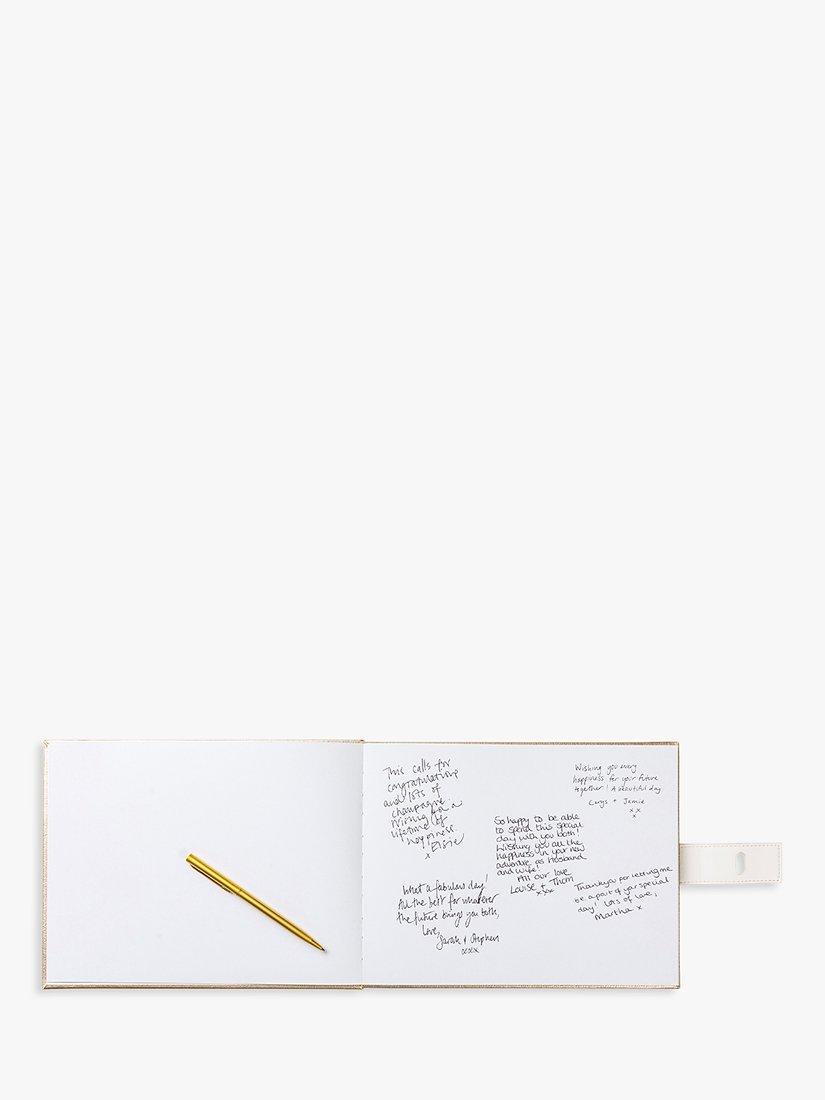 This calls for
congratulations
and lots of
champagne.
Wishing you a
lifetime of
happiness.
Elsie
x
Wishing you every
happiness for your future
together! A beautiful day
Cerys + Jamie
x x
x
So happy to be able
to spend this special
day with you both!
Wishing you all the
happiness in your new
adventure as Husband
and wife!
All our love
Louise + Thom
xxx
What a fabulous day!
All the best for whatever
the future brings you both,
Love,
Sarah & Stephen
xxx
Thankyou for letting me
be a part of your special
day! Lots of love,
Martha x